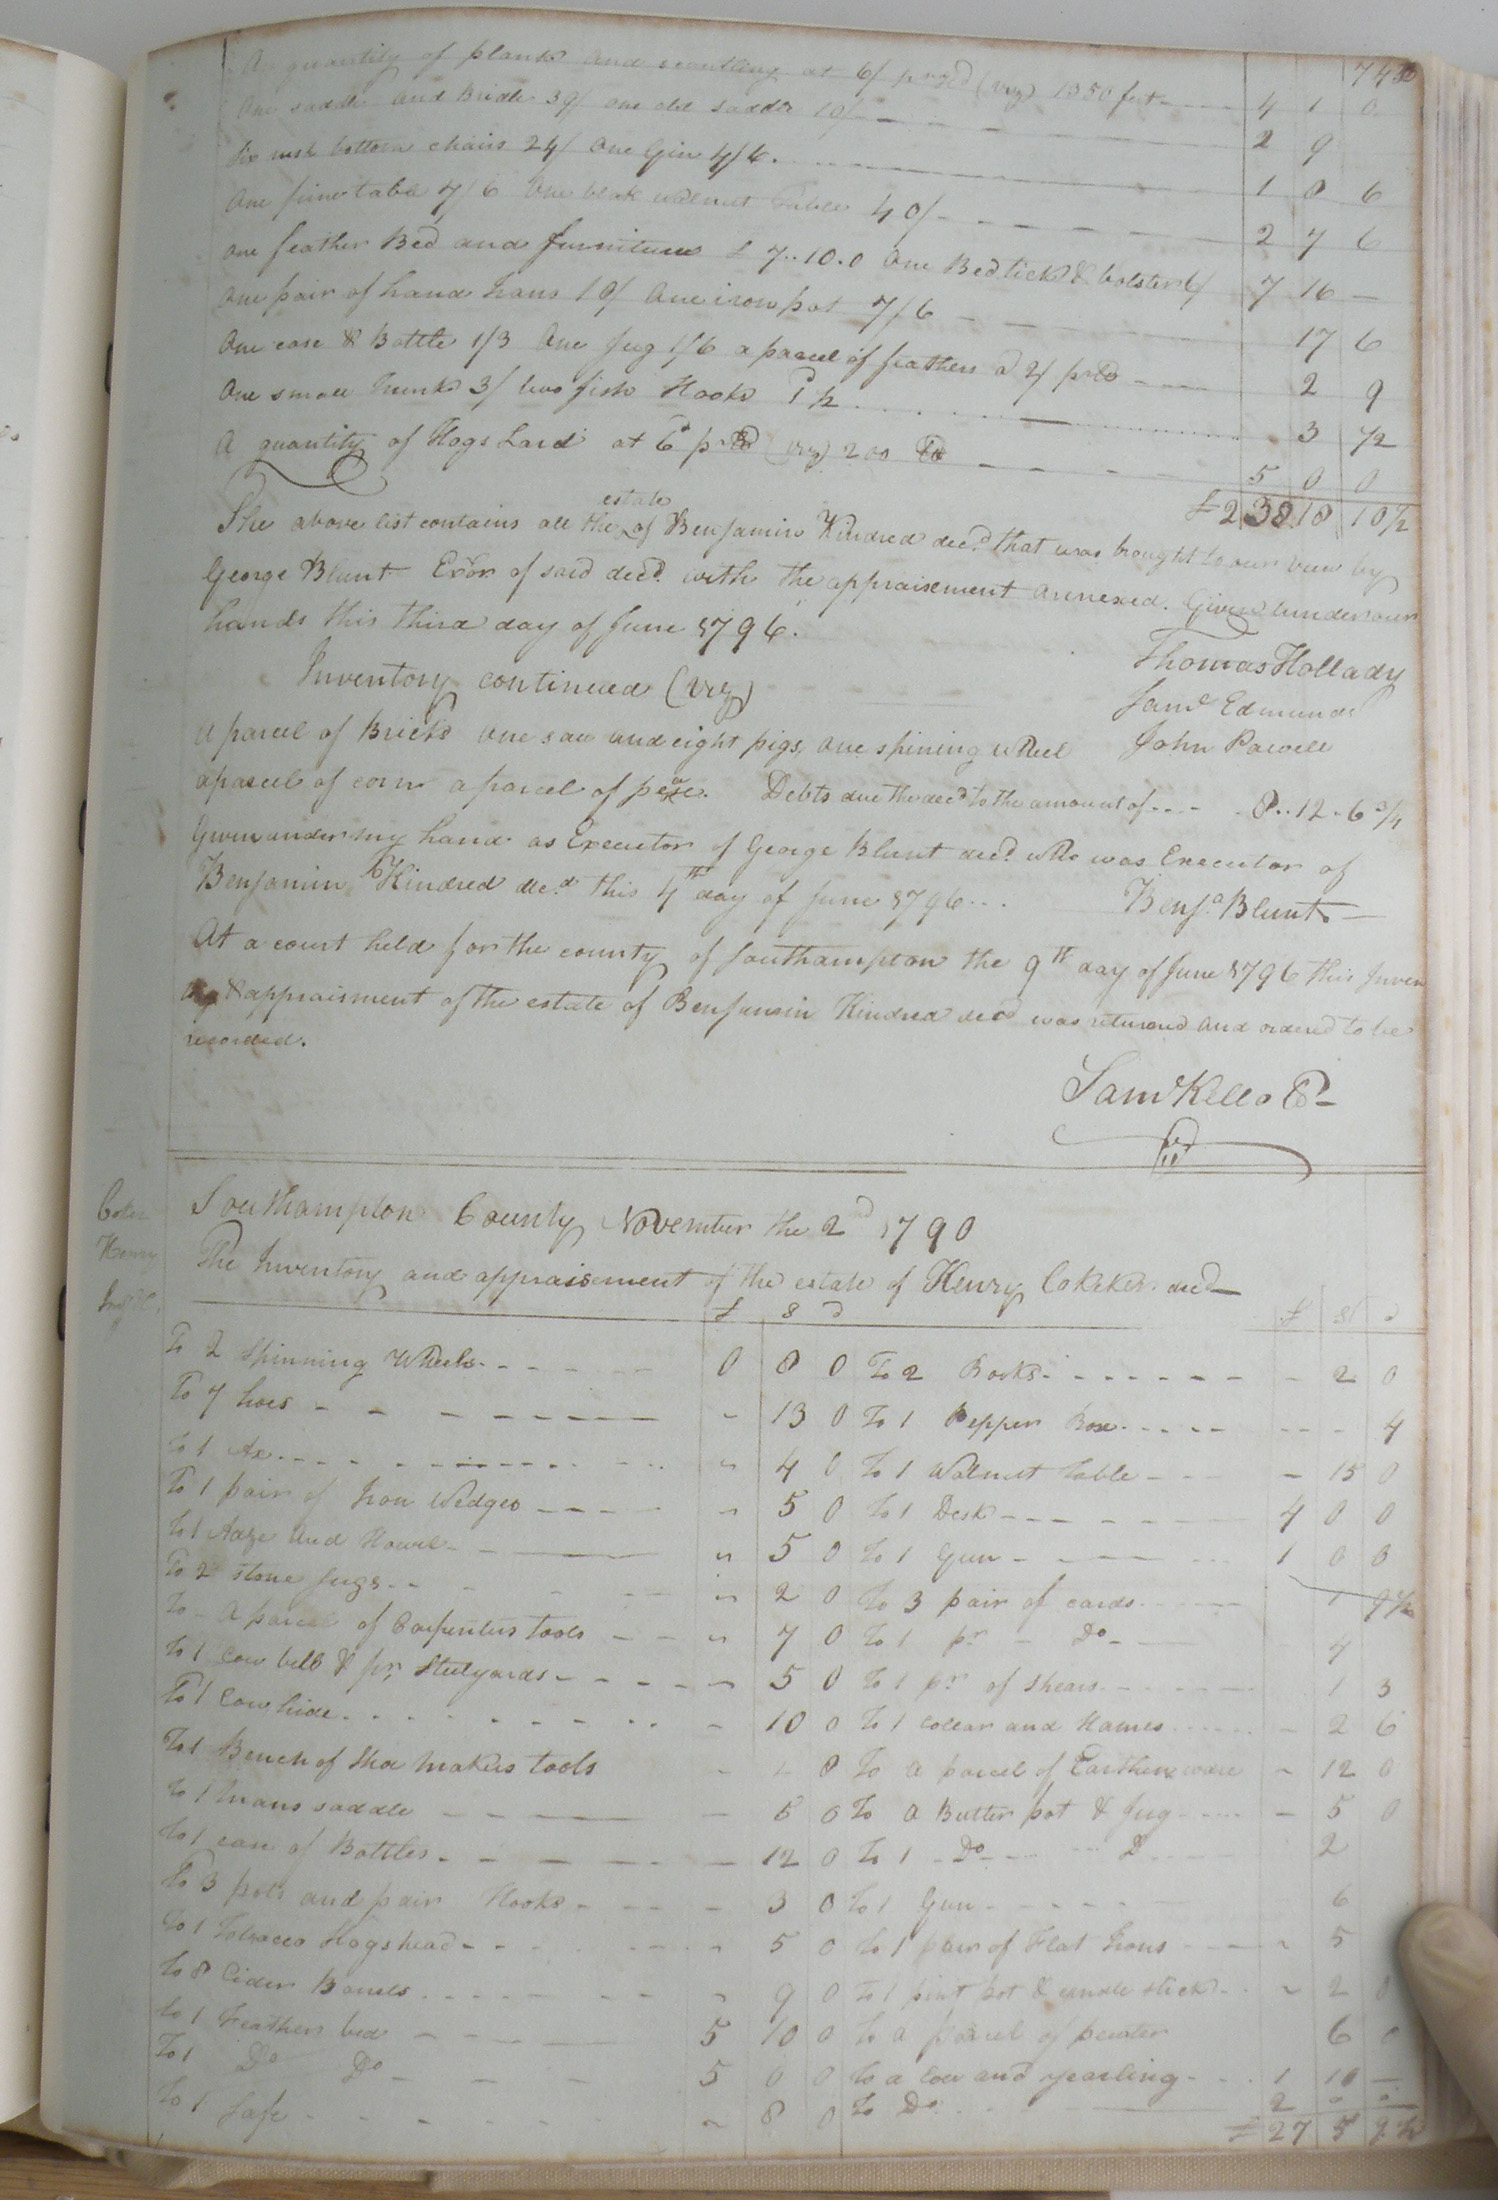 A quantity of plank and scantling at 6/ pr (viz) 1350 feet 4 1 0
One saddle and Bridle 39/ one old saddle 10/ 2 9
Six rush bottom chairs 24/ One Gin 4/6. 1 8 6
One pine table 7/6 One blak walnut Table 40/ 2 7 6
One feather Bed and furniture £ 7..10.0 One Bedtick & bolster 6/ 7 16 —
One pair of hand Irons 10/ One iron pot 7/6 17 6
One case & Bottle 1/3 One Jug 1/6 a parcel of feathers 2 9
One small Trunk 3/ two fish Hooks 3 1/2
A quantity of Hogs Lard at 6d (viz) 200 5 0 0
£ 238 18 10 1/2
The above list contains all the estate of Benjamin Kindred decd. that was brought to our view by
George Blunt Exor of said decd. with the appraisement annexed. Given under our
hands this third day of June 1796.
Thomas Hollady
Inventory continued (viz)
Saml Edmunds
A parcel of Bricks one sow and eight pigs, one spining wheel
John Powell
a parcel of corn a parcel of pease. Debts due the decd to the amount of 8..12..6 3/4
Given under my hand as Executor of George Blunt decd. who was Executor of
Benjamin Kindred decd. this 4th day of June 1796...
Benja. Blunt
At a court held for the county of Southampton the 9th day of June 1796 this Inven
& appraisment of the estate of Benjamin Kindred decd was returned and ordered to be
recorded.
Saml Kello
Southampton County November the 2d 1790
The Inventory and appraisement of the estate of Henry Cokeker decd
£ S d £ S d
To 2 Spinning Wheels 0 8 0 To 2 Books 2 0
To 7 hoes 13 0 To 1 Pepper Box 4
To 1 Ax 4 0 To 1 Walnut Table 15 0
To 1 pair of Iron Wedges 5 0 To 1 Desk 4 0 0
To 1 Adze and Howel 5 0 To 1 Gun 1 0 0
To 2 stone Jugs 2 0 To 3 pair of cards 1
To A parcel of Carpenters tools 7 0 To 1 pr Do 4
To 1 Cow bell & pr, Stilyards 5 0 To 1 pr of Shears 1 3
To 1 Cow hide 10 0 To 1 collar and Hames 2 6
To 1 Bench of Shoe makers tools 8 To a parcel of Earthen ware 12 0
To 1 Mans saddle 6 0 To a Butter pot & Jug 5 0
To 1 case of Bottles 12 0 To 1 Do D 2
To 3 pots and pair Hooks 3 0 To 1 Gun 6
To 1 Tobacco Hogshead 5 0 To 1 pair of Flat Irons 5
To 8 Cider Barrels 9 0 To 1 pint pot & candle stick 2 0
To 1 Feather bed 5 10 0 To a parcel of pewter 6
To 1 Do Do 5 0 0 To a Cow and yearling 1 10 —
To 1 Safe 8 0 To Do 2 0 0
£ 27 5 9 1/2